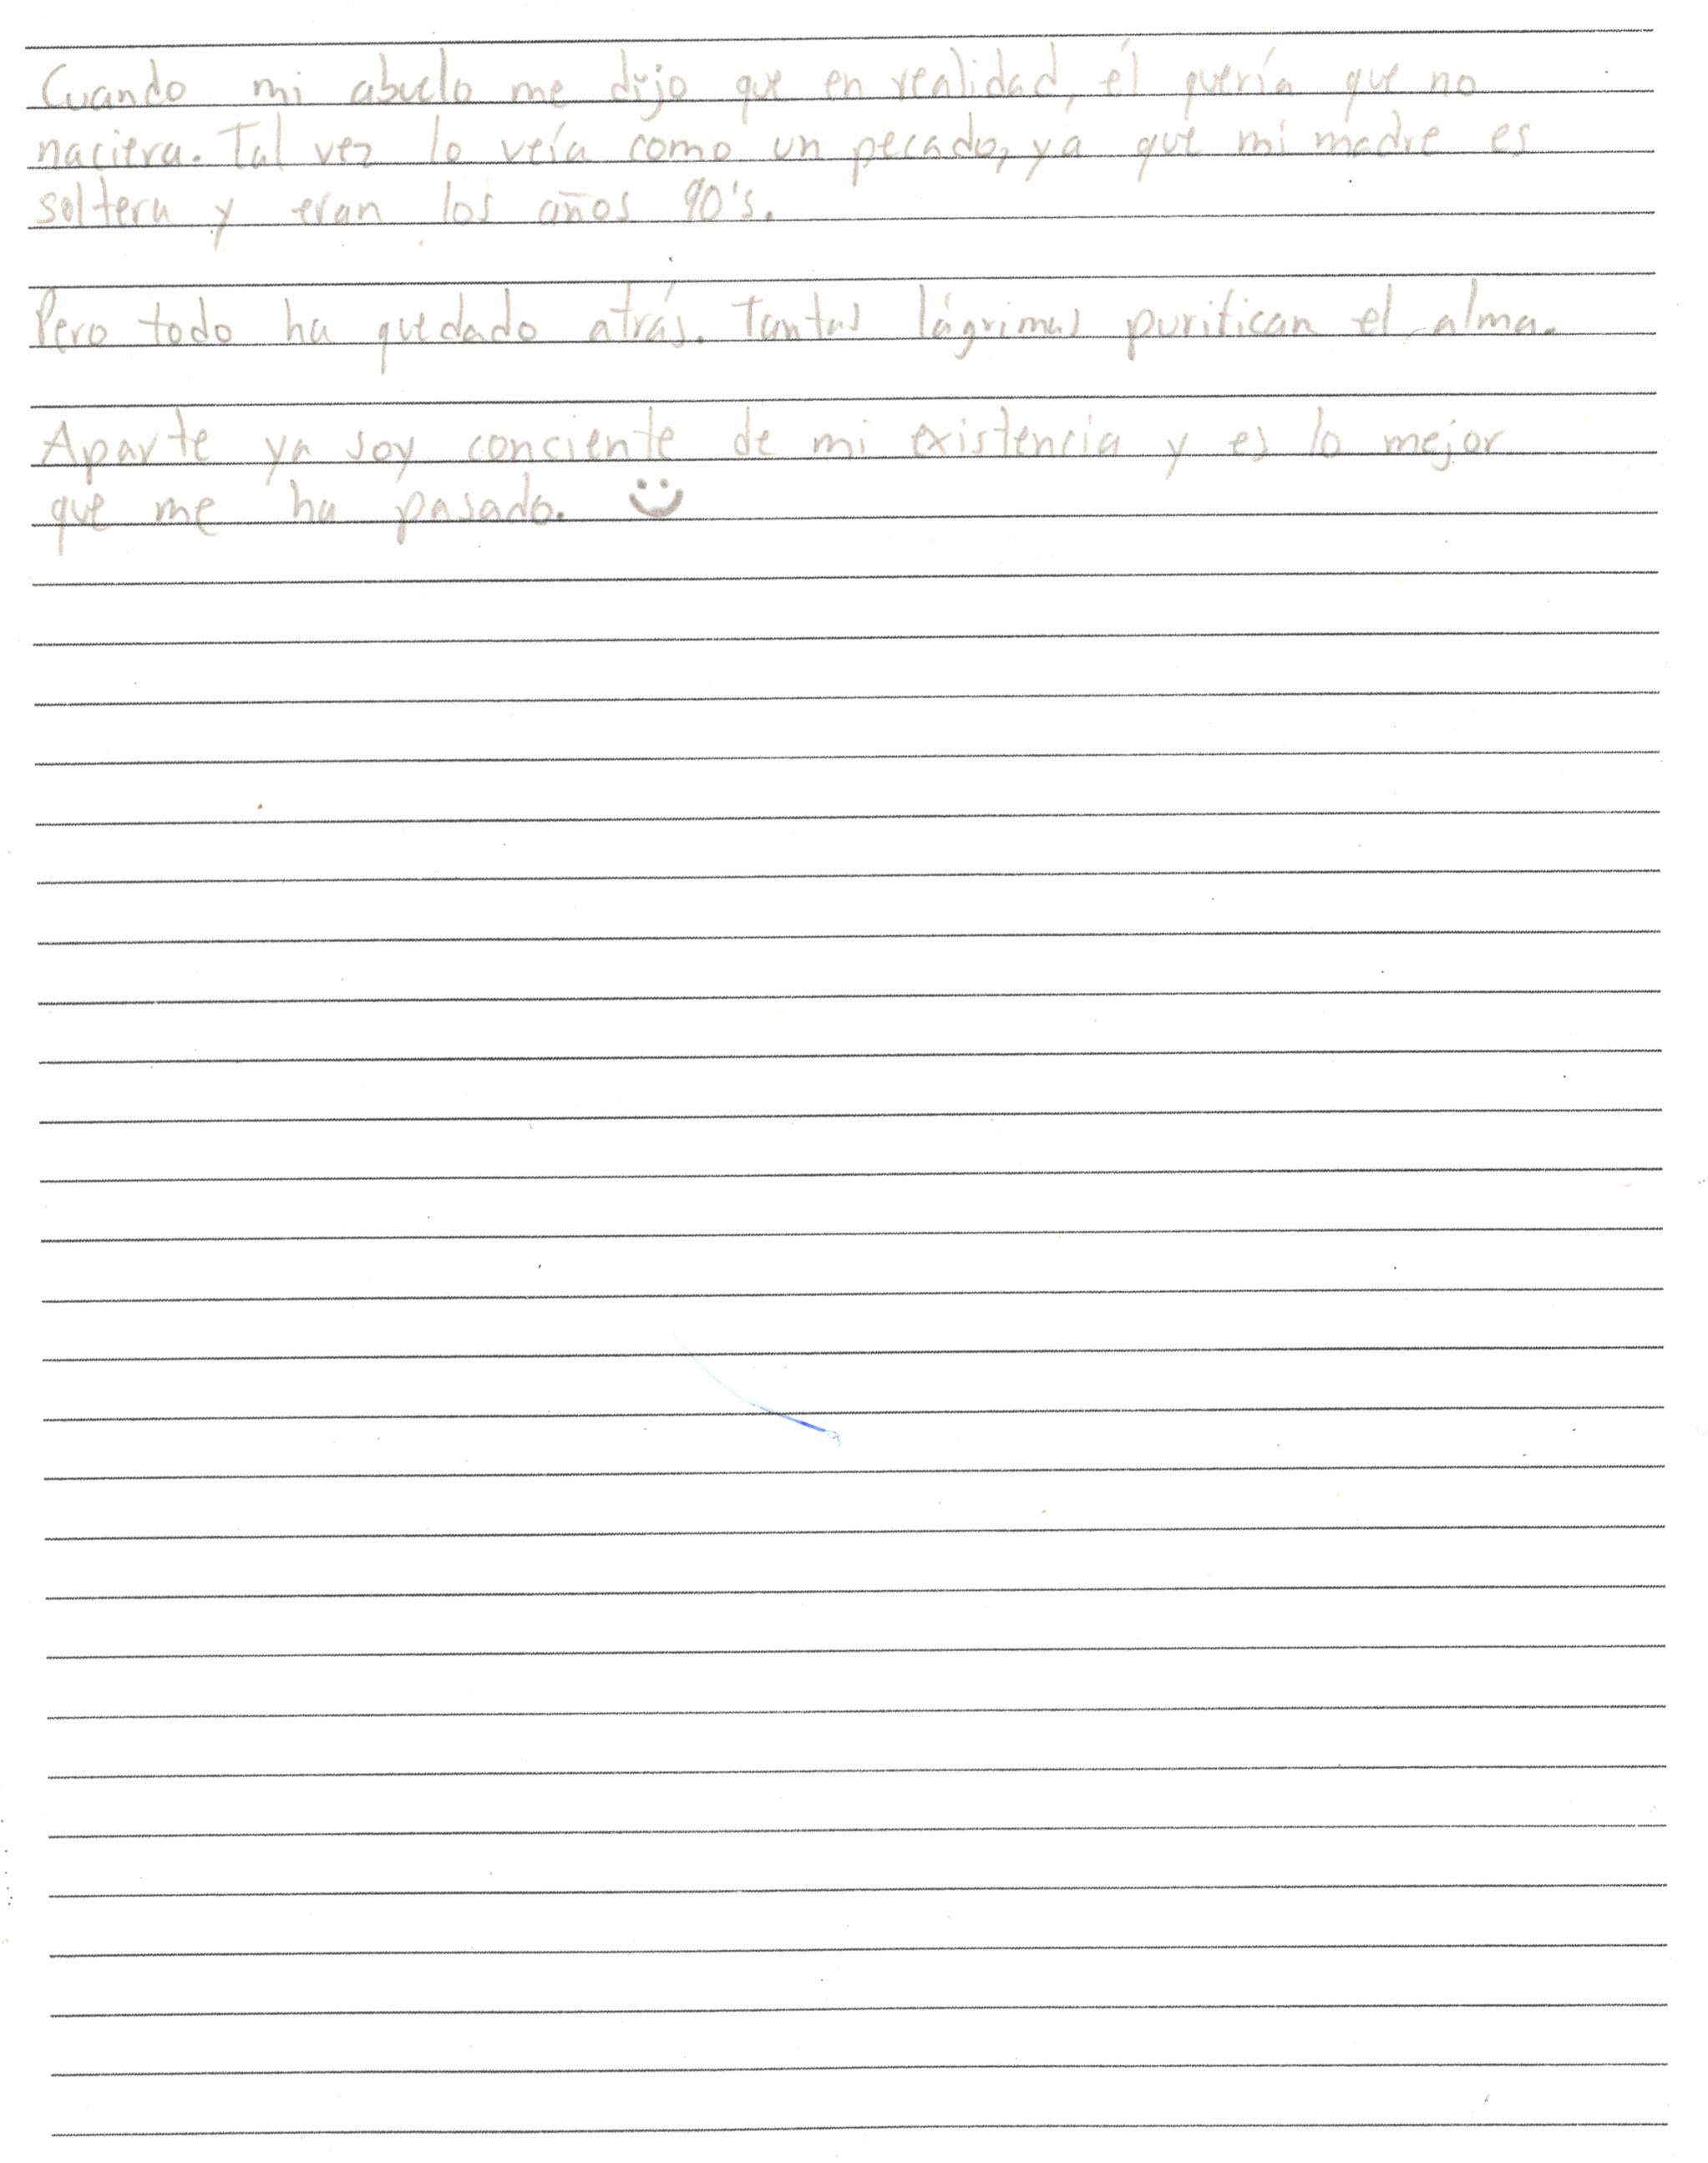 Cuando mi abuelo me dijo que en realidad, él quería que no
naciera. Tal vez lo veía como un pecado, ya que mi madre es
soltera y eran los años 90's.
Pero todo ha quedado atrás. Tantas lágrimas purifican el alma.
Aparte ya soy conciente de mi existencia y es lo mejor
que me ha pasado.